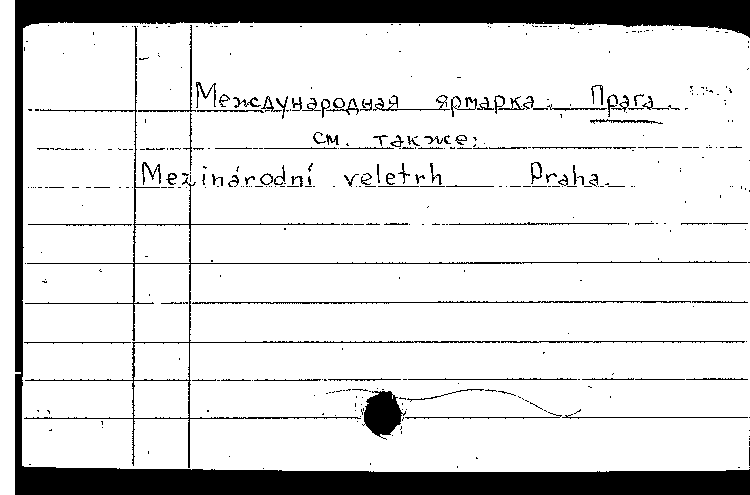 Международная ярмарка. Прага.
см. также:
Mezinárodní veletrh Praha.